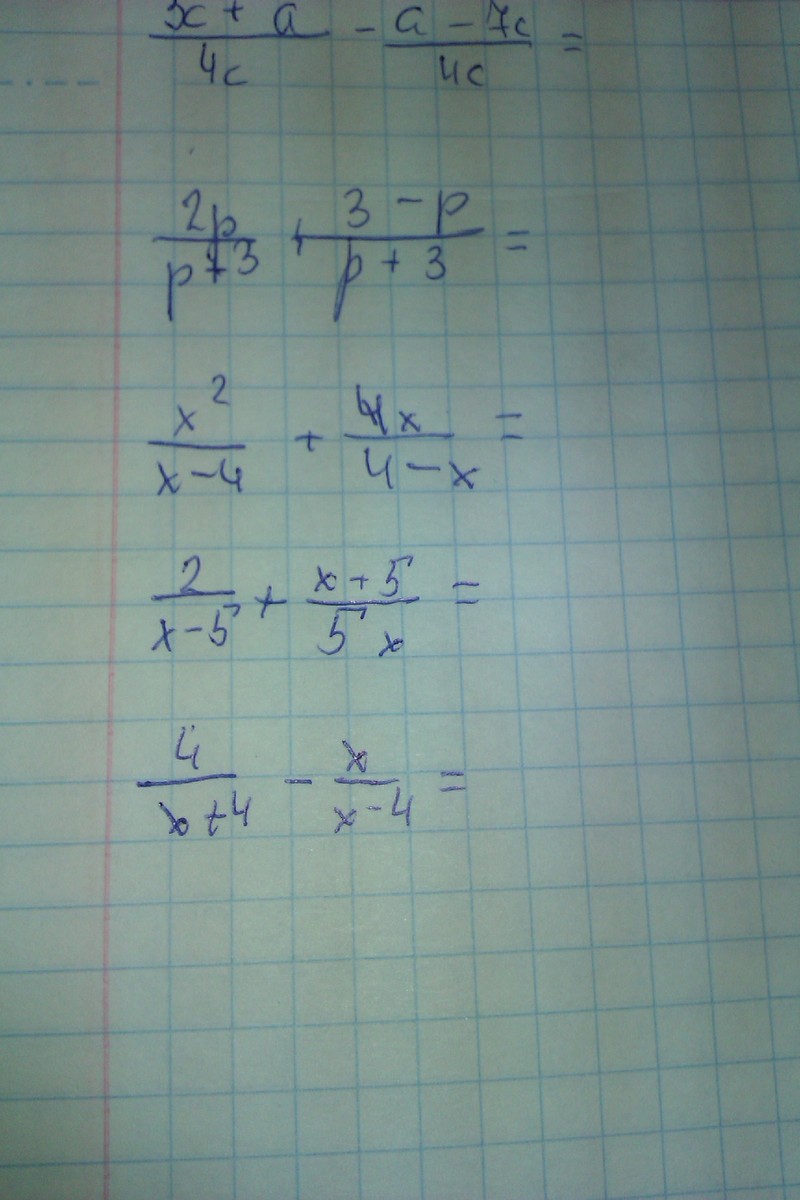 + a / 4c - a - 7c / 4c =
2p / p + 3 + 3 - p / p + 3 =
x² / x - 4 + 4x / 4 - x =
2 / x - 5 + x + 5 / 5 x =
4 / x + 4 - x / x - 4 =